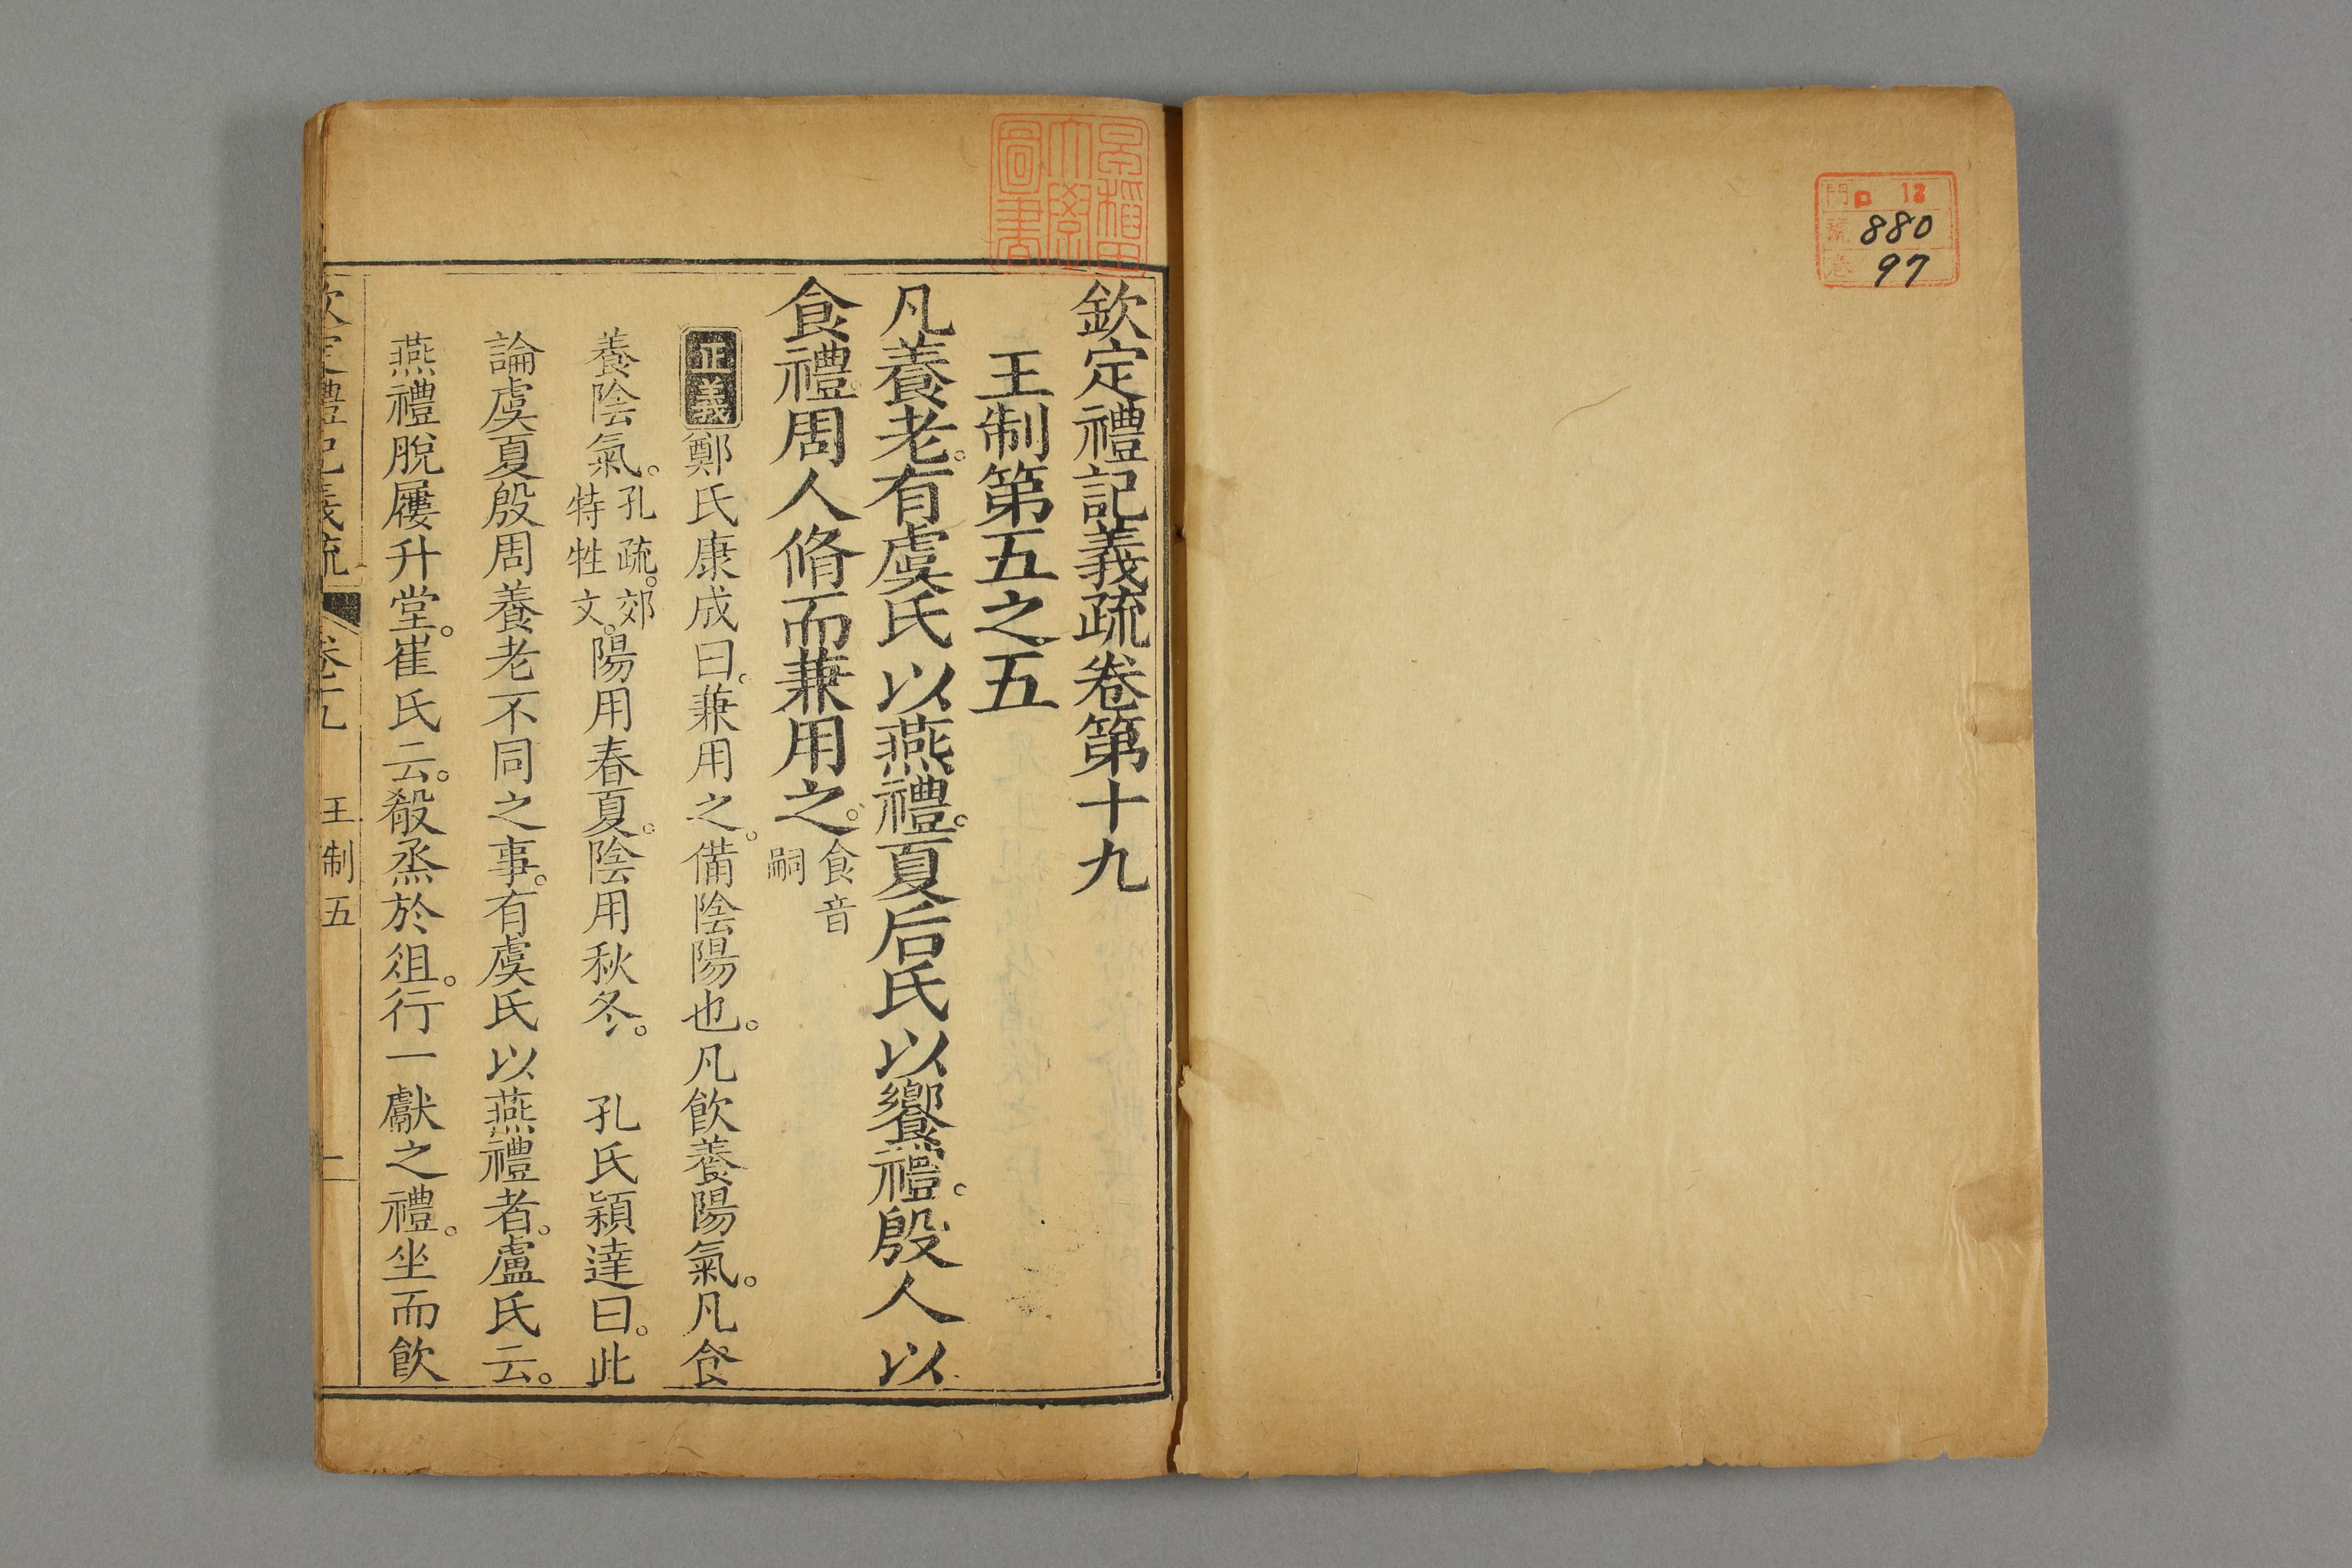 門 ロ 12
號 880
卷 97
早稲田大學圖書
欽定禮記義疏卷第十九
王制第五之五
凡養老。有虞氏以燕禮。夏后氏以饗禮。殷人以
食禮。周人脩而兼用之。食音嗣
正義鄭氏康成曰。兼用之。備陰陽也。凡飲養陽氣。凡食
養陰氣。孔疏。郊特牲文。陽用春夏。陰用秋冬。 孔氏穎達曰。此
論虞夏殷周養老不同之事。有虞氏以燕禮者。盧氏云。
燕禮脫屨升堂。崔氏云。殽烝於俎。行一獻之禮。坐而飲
欽定禮記義疏 卷十九 王制五 一